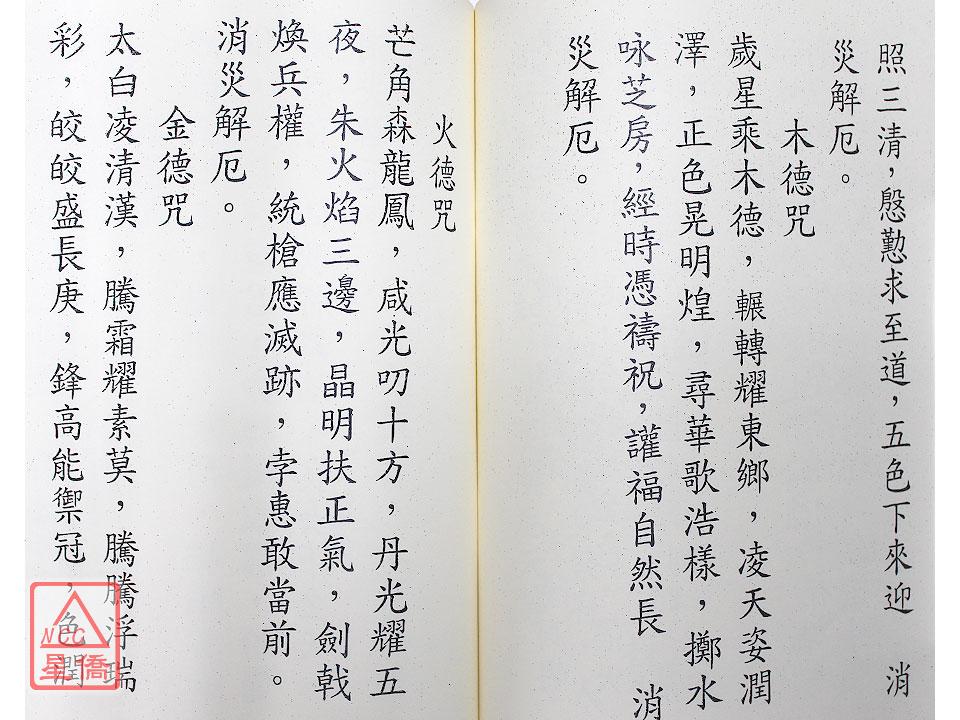 照三清，慇懃求至道，五色下來迎　消
災解厄。
木德咒
歲星乘木德，輾轉耀東鄉，凌天姿潤
澤，正色晃明煌，尋華歌浩樣，擲水
咏芝房，經時憑禱祝，讙福自然長　消
災解厄。
火德咒
芒角森龍鳳，咸光叨十方，丹光耀五
夜，朱火焰三邊，晶明扶正氣，劍戟
煥兵權，統槍應滅跡，孛惠敢當前。
消災解厄。
金德咒
太白凌清漢，騰霜耀素莫，騰騰浮瑞
彩，皎皎盛長庚，鋒高能禦冠，色潤
NCC
星僑